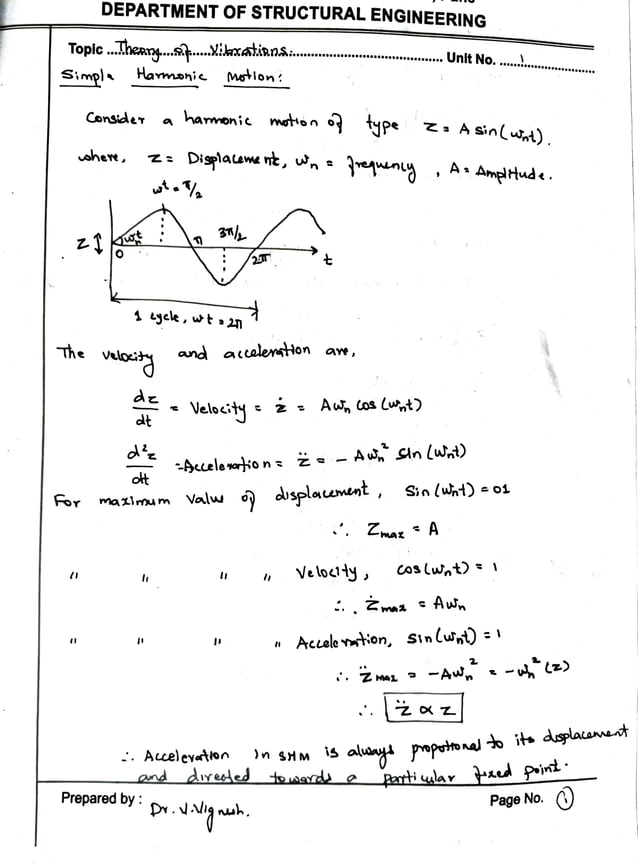 DEPARTMENT OF STRUCTURAL ENGINEERING
Topic ...Theory...of...Vibrations............ Unit No. ...1...
Simple Harmonic Motion:
Consider a harmonic motion of type z = A sin(ωnt).
where, z = Displacement, ωn = frequency, A = Amplitude.
ωt = π/2
z ↕ ωnt π 3π/2
0 2π t
1 cycle, ωt = 2π
The velocity and acceleration are,
dz/dt = Velocity = ż = Aωn cos(ωnt)
d²z/dt = Acceleration = z̈ = - Aωn² sin(ωnt)
For maximum value of displacement, sin(ωnt) = 01
∴ Zmax = A
" " " " Velocity, cos(ωnt) = 1
∴ żmax = Aωn
" " " " Acceleration, sin(ωnt) = 1
∴ z̈max = -Aωn² = -ωn²(z)
∴ z̈ ∝ z
∴ Acceleration in SHM is always propotional to its displacement
and directed towards a particular fixed point.
Prepared by : Dr. V. Vignesh. Page No. 1